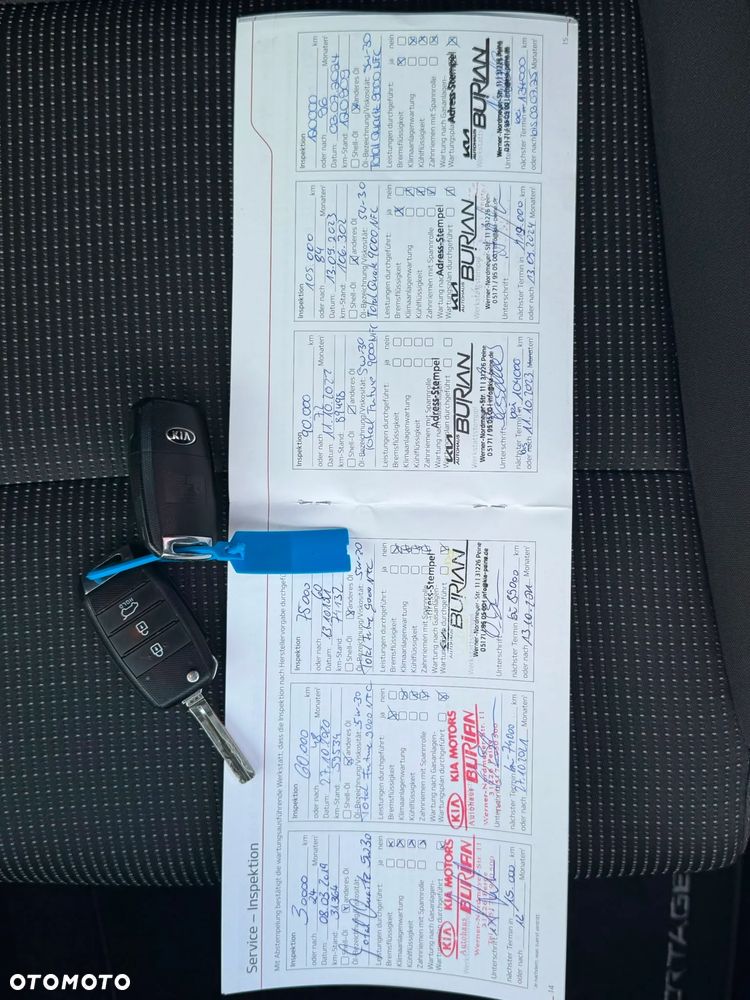 Service – Inspektion
Mit Abstempelung bestätigt die wartungsausführende Werkstatt, dass die Inspektion nach Herstellervorgabe durchgef
Inspektion 30000 km
oder nach 24 Monaten
Datum: 08.05.2019
km-Stand: 31364
Shell-Öl anderes Öl
Öl-Bezeichnung/Viskosität:
Total Quartz 5W30
Leistungen durchgeführt: ja nein
Bremsflüssigkeit
Klimaanlagenwartung
Kühlflüssigkeit
Zahnriemen mit Spannrolle
Wartung nach Gasanlagen-
Wartungsplan durchgeführt
KIA KIA MOTORS
Autohaus BURIAN
Werner-Nordmeyer-Str. 11
Unterschrift
nächster Termin in 15.000 km
oder nach 12 Monaten
14
Inspektion 60.000 km
oder nach 48 Monaten
Datum: 27.10.2020
km-Stand: 59534
Shell-Öl anderes Öl
Öl-Bezeichnung/Viskosität: 5W-30
Total Future 9000 NFC
Leistungen durchgeführt: ja nein
Bremsflüssigkeit
Klimaanlagenwartung
Kühlflüssigkeit
Zahnriemen mit Spannrolle
Wartung nach Gasanlagen-
Wartungsplan durchgeführt
KIA KIA MOTORS
Autohaus BURIAN
Werner-Nordmeyer-Str. 11
Unterschrift
nächster Termin in 74400 km
oder nach 27.10.2021 Monaten
Inspektion 75000 km
oder nach 60 Monaten
Datum: 13.10.21
km-Stand: 74137
anderes Öl
Öl-Bezeichnung/Viskosität: 5W-30
Total Future 9000 NFC
Leistungen durchgeführt: ja nein
Bremsflüssigkeit
Klimaanlagenwartung
Kühlflüssigkeit
Zahnriemen mit Spannrolle
Wartung nach Gasanlagen-
Adress-Stempel
KIA AUTOHAUS BURIAN
Werner-Nordmeyer-Str. 11 I 31226 Peine
05171 / 95 05 00 I info@kia-peine.de
Unterschrift
nächster Termin in bei 89000 km
oder nach 13.10. Monaten
Inspektion 90.000 km
oder nach 72 Monaten
Datum: 11.10.2022
km-Stand: 89498
Shell-Öl anderes Öl
Öl-Bezeichnung/Viskosität: 5W30
Total Future 9000 NFC
Leistungen durchgeführt: ja nein
Bremsflüssigkeit
Klimaanlagenwartung
Kühlflüssigkeit
Zahnriemen mit Spannrolle
Adress-Stempel
KIA AUTOHAUS BURIAN
Werner-Nordmeyer-Str. 11 I 31226 Peine
05171 / 95 05 00 I info@kia-peine.de
Unterschrift
nächster Termin bei 104000 km
oder nach 11.10.2023 Monaten
Inspektion 105.000 km
oder nach 84 Monaten
Datum: 13.09.2023
km-Stand: 106.302
Shell-Öl anderes Öl
Öl-Bezeichnung/Viskosität: 5W-30
Total Quartz 9000 NFC
Leistungen durchgeführt: ja nein
Bremsflüssigkeit
Klimaanlagenwartung
Kühlflüssigkeit
Zahnriemen mit Spannrolle
Adress-Stempel
KIA AUTOHAUS BURIAN
Werner-Nordmeyer-Str. 11 I 31226 Peine
05171 / 95 05 00 I info@kia-peine.de
Unterschrift
nächster Termin in 119.000 km
oder nach 13.09.2024 Monaten
Inspektion 120.000 km
oder nach 96 Monaten
Datum: 03.07.2024
km-Stand: 120309
Shell-Öl anderes Öl
Öl-Bezeichnung/Viskosität: 5W-30
Total Quartz 9000 NFC
Leistungen durchgeführt: ja nein
Bremsflüssigkeit
Klimaanlagenwartung
Kühlflüssigkeit
Zahnriemen mit Spannrolle
Wartung nach Gasanlagen-
Adress-Stempel
KIA AUTOHAUS BURIAN
Werner-Nordmeyer-Str. 11 I 31226 Peine
Unterschrift
nächster Termin bei 134000 km
oder nach bis 02.07.25 Monaten
15
KIA
HOLD
OTOMOTO